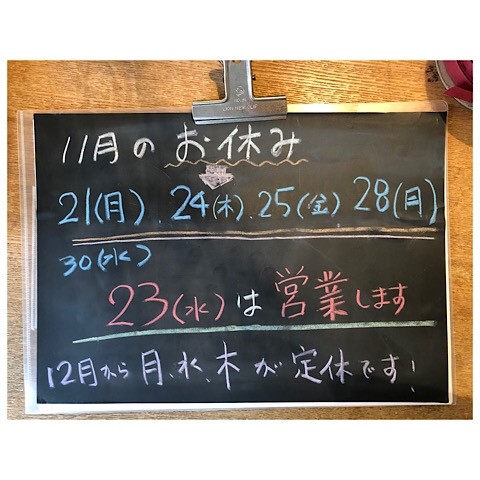 11月のお休み
21(月)、24(木)、25(金) 28(月)
30(水)
23(水)は営業します
12月から月、水、木が定休です!